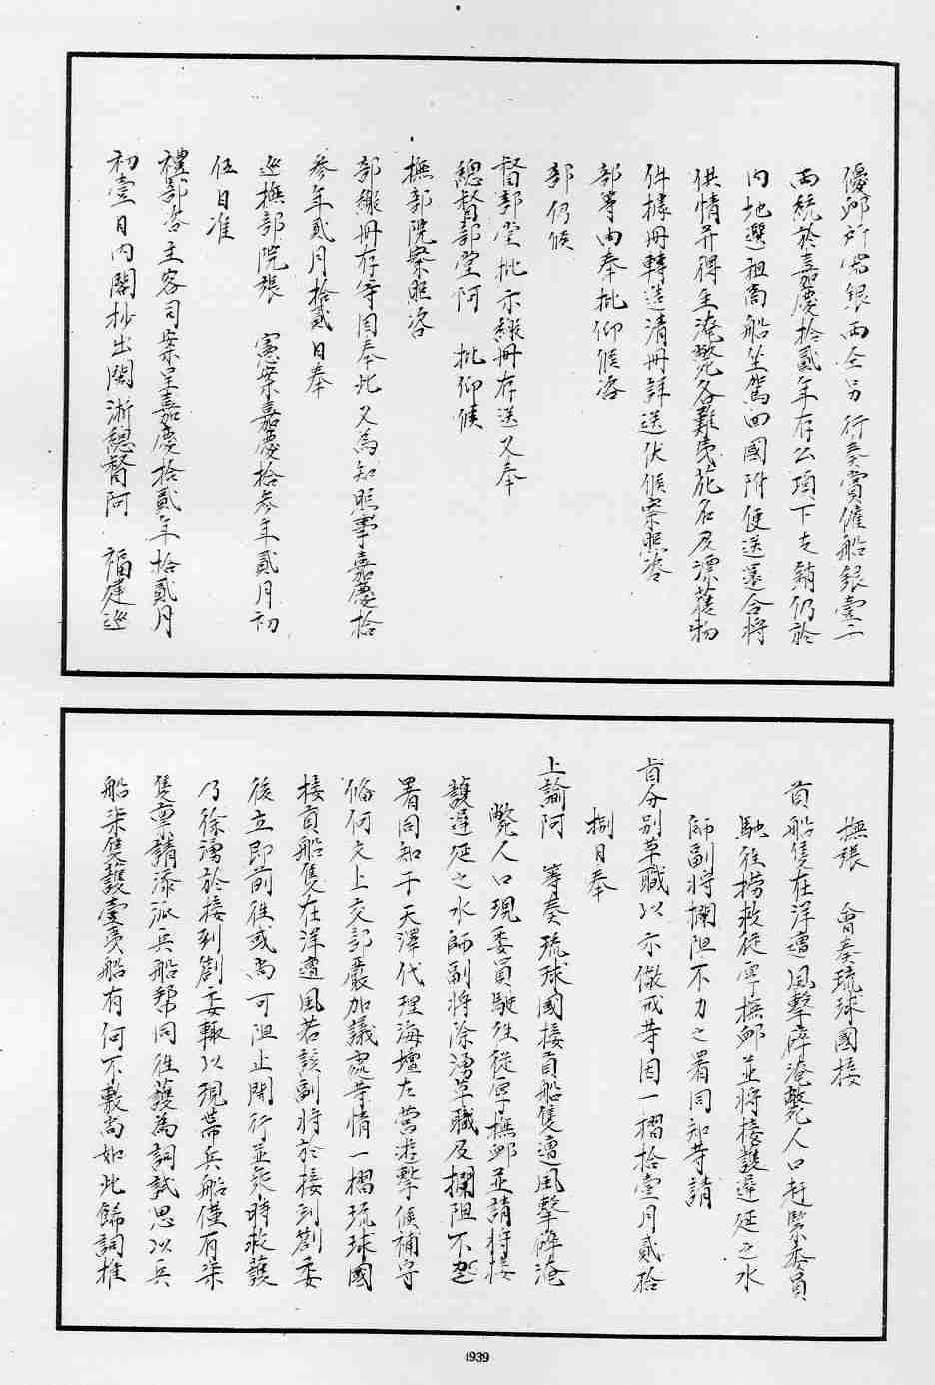 優卹所需銀兩全另行奏賞僱船銀壹二
兩統於嘉慶拾貳年存公項下支銷仍於
內地選租商船坐駕回國附便送還合將
供情并得生淹斃各難夷花名及漂獲物
件據冊轉造清冊詳送伏候察照咨
部等由奉批仰候咨
部仍候
督部堂批示繳冊存送又奉
總督部堂阿　批仰候
撫部院察照咨
部繳冊存等因奉此又為知照事嘉慶拾
參年貳月拾貳日奉
巡撫部院張　憲案嘉慶拾參年貳月初
伍日准
禮部咨主客司案呈嘉慶拾貳年拾貳月
初壹日內閣抄出閩浙總督阿　福建巡
撫張　會奏琉球國接
貢船隻在洋遭風擊碎淹斃人口赶緊委員
馳往撈救從寧撫卹並將接護遲延之水
師副將攔阻不力之署同知等請
旨分別革職以示儆戒等因一摺拾壹月貳拾
捌日奉
上諭阿　等奏琉球國接貢船隻遭風擊碎淹
斃人口現委員馳往從寧撫卹並請將接
護遲延之水師副將徐湧革職及攔阻不
署同知于天澤代理海壇左營遊擊候補守
備何文上交部嚴加議處等情一摺琉球國
接貢船隻在洋遭風若該副將於接到劄委
後立即前往或尚可阻止開行並及時救護
乃徐湧於接到劄委輒以現帶兵船僅有柒
隻稟請添派兵船幫同往護為詞試思以兵
船柒隻護壹夷船有何不敷尚如此飾詞推
4939